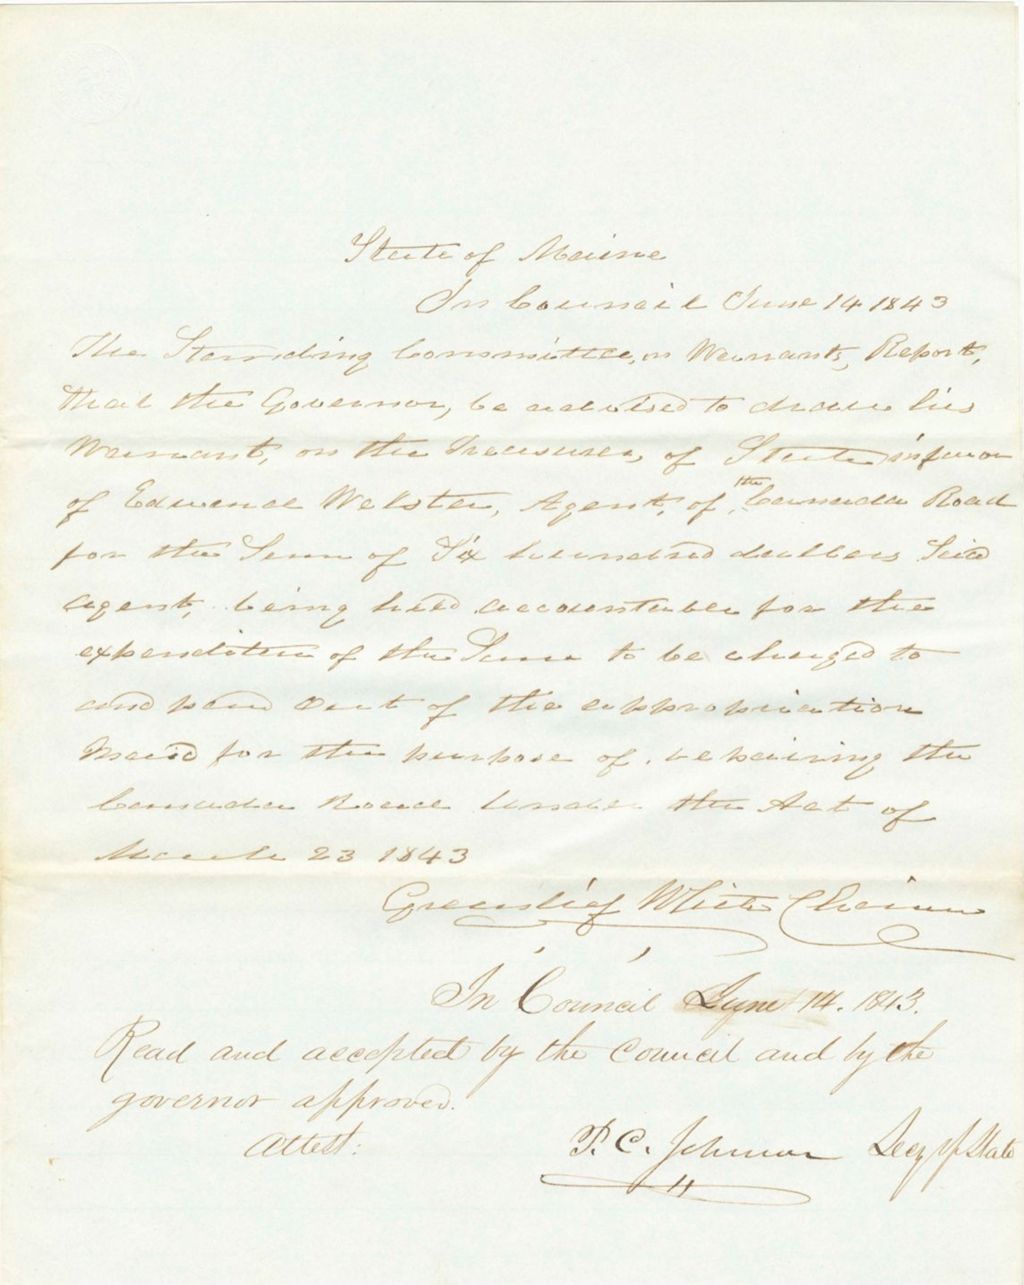 State of Maine
In Council June 14 1843
The Standing Committee, on Warrants, Report,
that the Governor, be advised to draw his
Warrant, on the Treasurer, of State in favor
of Edmund Webster, Agent, of, the Canada Road
for the Sum of Six hundred dollars Said
agent, being held accountable for the
expenditure of the Same to be charged to
and paid out of the appropriation
Made for the purpose of, repairing the
Canada Road Under the Act of
March 23 1843
Greenlief White Chairman
In Council June 14. 1843.
Read and accepted by the Council and by the
governor approved.
Attest:
P. C. Johnson Secy of State